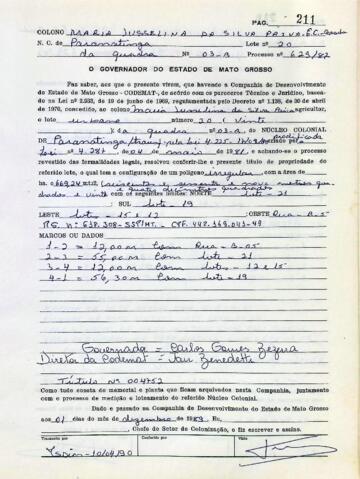 PAG. 211
COLONO MARIA JUSSELINA DA SILVA PAIVA, E.C. Casada
N. C. de Paranatinga Lote nº 20
da quadra Nº 03-A Processo nº 629/82
O GOVERNADOR DO ESTADO DE MATO GROSSO
Faz saber, aos que o presente virem, que havendo a Companhia de Desenvolvimento
do Estado de Mato Grosso - CODEMAT-, de acôrdo com os pareceres Técnico e Jurídico, basea-
do na Lei nº 2.933, de 19 de junho de 1969, regulamentada pelo Decreto nº 1.138, de 30 de abril
de 1970, concedido, ao colono Maria Jusselina da Silva Paiva agricultor, o
lote urbano número 20 ( Vinte
) da quadra nº 03-A. do NÚCLEO COLONIAL
DE Paranatinga pela lei 4.225. modificada pela
Lei nº 4.281 de maio de e achando-se o processo
revestido das formalidades legais, resolveu conferir-lhe o presente título de propriedade
do referido lote, o qual tem a configuração de um polígono irregular com a área de
669,24 mts2, (seiscentos e sessenta e nove metros qua-
drados e vinte e quatro decímetros quadrados) e os seguintes limites: NORTE lote - 21
SUL lote - 19
LESTE lote - 15 e 12 OESTE Rua - B-5
R.G. nº 638.308-SSP/MT. - CPF. 442.369.043-49
MARCOS OU DADOS
1-2 = 12,00 m Com Rua - B-05
2-3 = 55,00 m Com lote - 21
3-4 = 12,00 m Com lote - 12 e 15
4-1 = 56,30 m Com lote - 19
Governador = Carlos Gomes Bezerra
Diretor da Codemat = Jair Benedetti
Título Nº 004752
Como tudo consta do memorial e planta que ficam arquivados nesta Companhia, juntamente
com o processo de medição e loteamento do referido Núcleo Colonial.
Dado e passado na Companhia de Desenvolvimento do Estado de Mato Grosso
aos 01 dias do mês de dezembro de 1989. Eu,
, Chefe do Setor de Colonização, o fiz escrever e assino.
Transcrito por Conferido por Visto
10/04/90